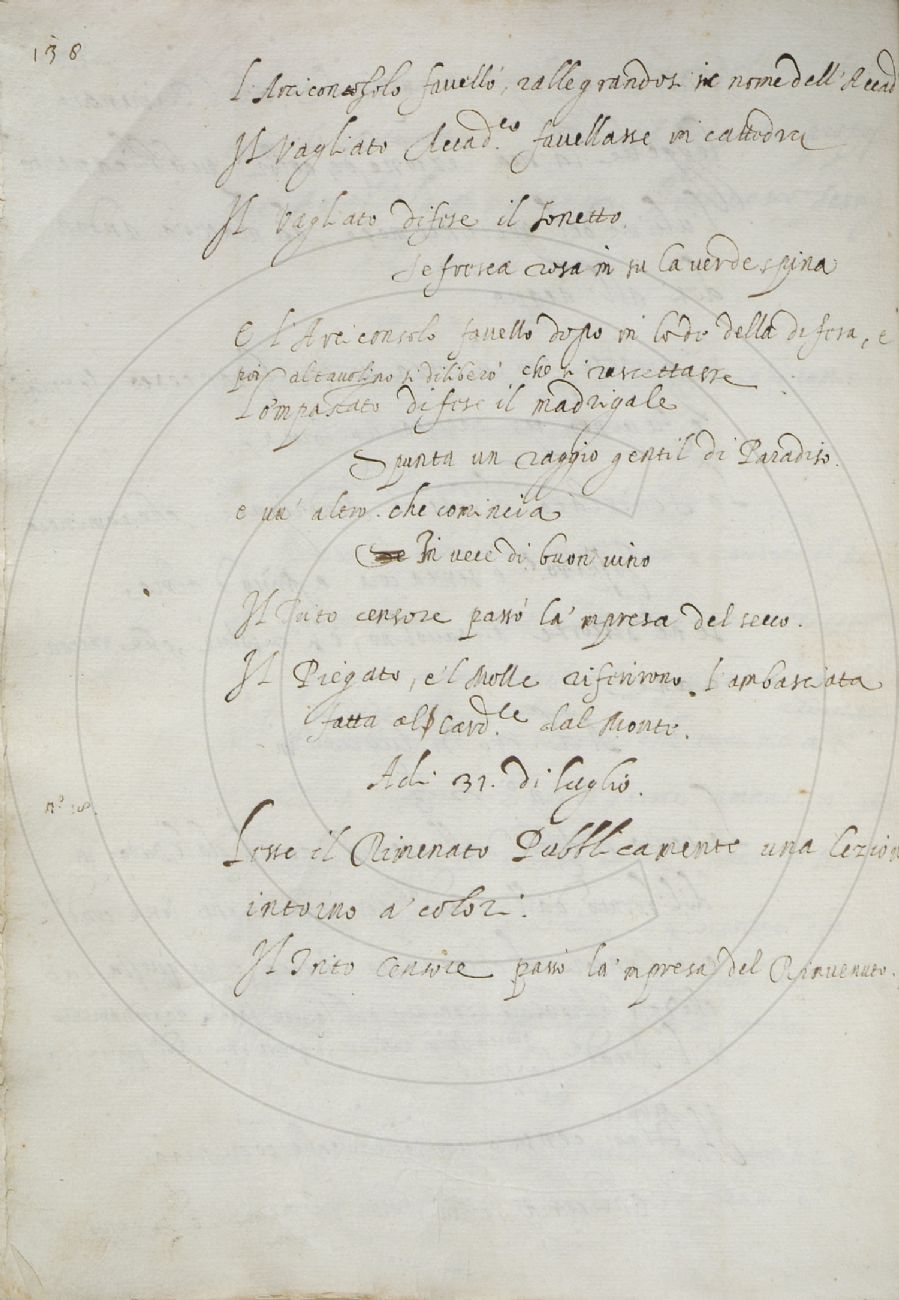 138
L'Arciconsolo favellò, rallegrandosi in nome dell'Accad
Il Vagliato Accad.co favellasse in cattedra
Il Vagliato difese il sonetto.
Se fresca rosa in su la verde spina
E l'Arciconsolo favellò dopo in lode della difesa, e
poi al tavolino si diliberò che si rascettasse
Lo'mpastato difese il madrigale
Spunta un raggio gentil di Paradiso.
e un' altro. che comincia
In vece di buon vino
Il Trito censore passò la 'mpresa del secco.
Il Piegato, e'l Molle riferirono l'ambasciata
fatta al Card.le dal Monte.
Adi 31. di luglio.
Lesse il Rimenato Pubblicamente una lezion
intorno a' colori.
Il Trito Censore passò la 'mpresa del Rinvenuto.